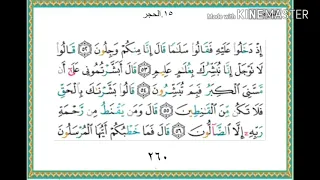 ١٥.الحجر
Made with KINEMASTER
إِذْ دَخَلُوا۟ عَلَيْهِ فَقَالُوا۟ سَلَٰمًا قَالَ إِنَّا مِنكُمْ وَجِلُونَ ٥٢ قَالُوا۟
لَا تَوْجَلْ إِنَّا نُبَشِّرُكَ بِغُلَٰمٍ عَلِيمٍ ٥٣ قَالَ أَبَشَّرْتُمُونِى عَلَىٰٓ أَن
مَّسَّنِىَ ٱلْكِبَرُ فَبِمَ تُبَشِّرُونَ ٥٤ قَالُوا۟ بَشَّرْنَٰكَ بِٱلْحَقِّ
فَلَا تَكُن مِّنَ ٱلْقَٰنِطِينَ ٥٥ قَالَ وَمَن يَقْنَطُ مِن رَّحْمَةِ
رَبِّهِۦٓ إِلَّا ٱلضَّآلُّونَ ٥٦ قَالَ فَمَا خَطْبُكُمْ أَيُّهَا ٱلْمُرْسَلُونَ
٢٦٠